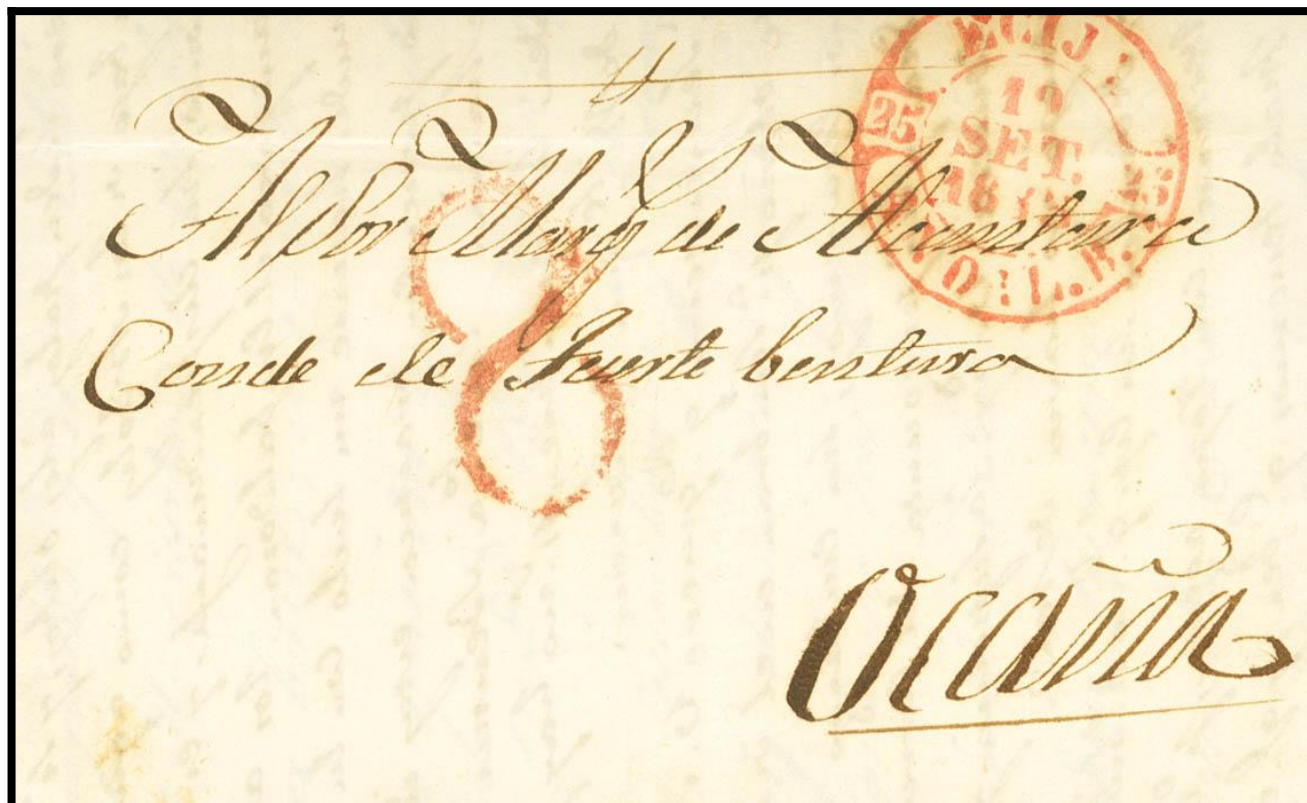 ECIJA
SET.
25
25
Al Sor Marq de Alcantara
8
Conde de Fuerte bentura
Ocaña